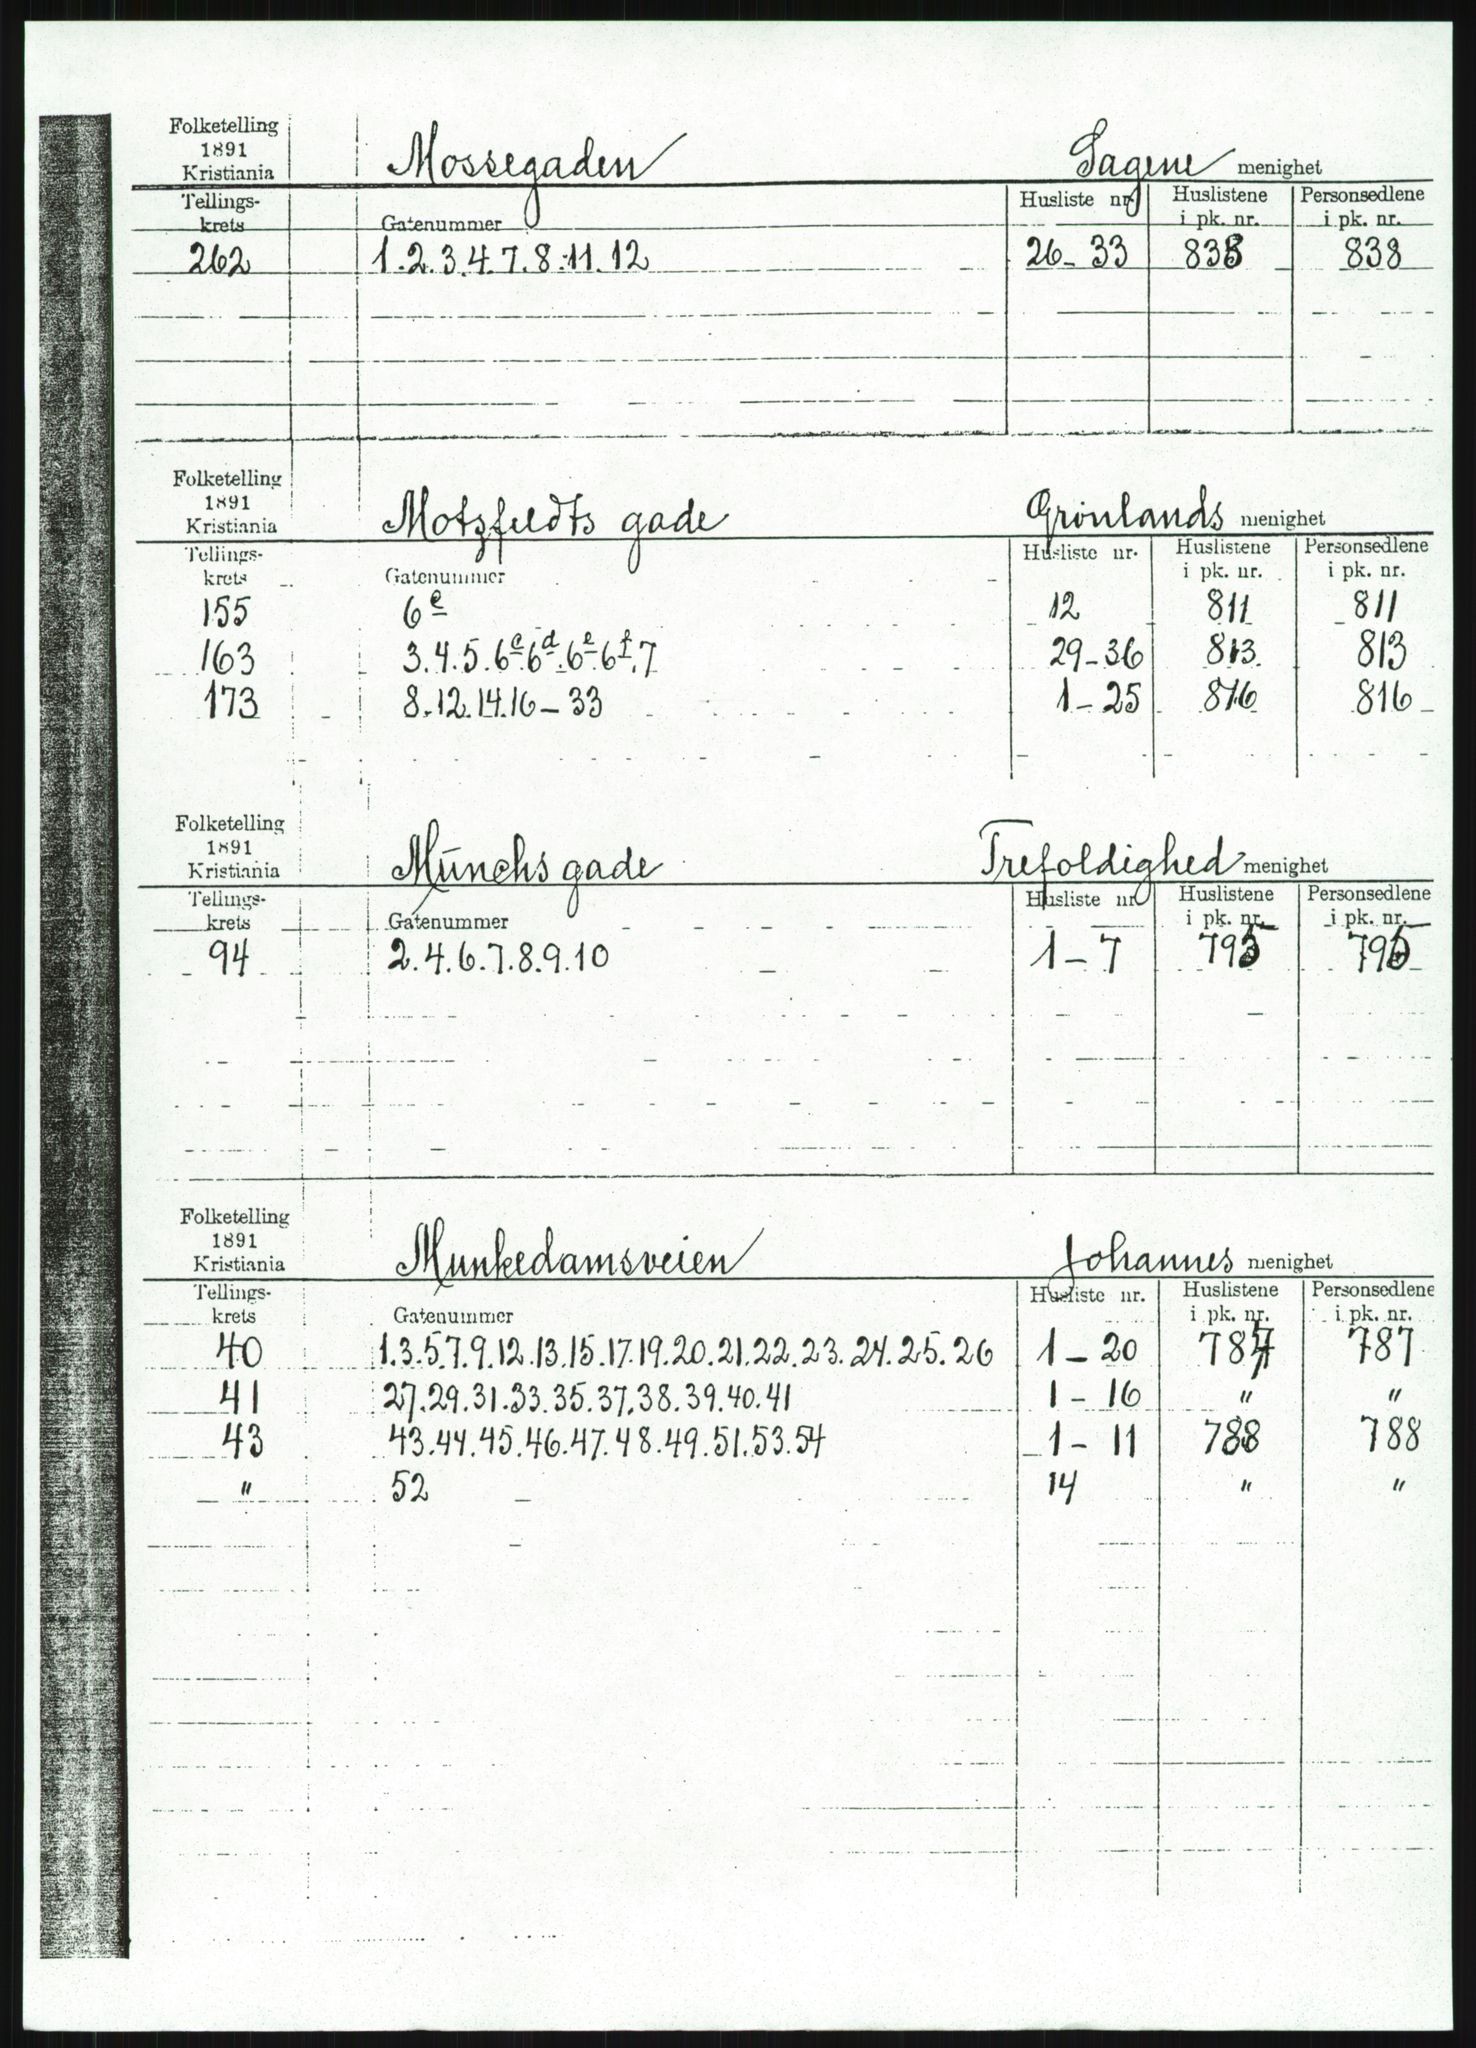 Folketelling
1891
Kristiania Mossegaden Sagene menighet
Tellings-krets Gatenummer Husliste nr. Huslistene i pk. nr. Personsedlene i pk. nr.
262 1.2.3.4.7.8.11.12 26-33 838 838
Folketelling
1891
Kristiania Motzfeldts gade Grönlands menighet
Tellings-krets Gatenummer Husliste nr. Huslistene i pk. nr. Personsedlene i pk. nr.
155 6e 12 811 811
163 3.4.5.6c.6d.6e.6f.7 29-36 813 813
173 8.12.14.16-33 1-25 816 816
Folketelling
1891
Kristiania Munchs gade Trefoldighed menighet
Tellings-krets Gatenummer Husliste nr. Huslistene i pk. nr. Personsedlene i pk. nr.
94 2.4.6.7.8.9.10 1-7 795 795
Folketelling
1891
Kristiania Munkedamsveien Johannes menighet
Tellings-krets Gatenummer Husliste nr. Huslistene i pk. nr. Personsedlene i pk. nr.
40 1.3.5.7.9.12.13.15.17.19.20.21.22.23.24.25.26 1-20 787 787
41 27.29.31.33.35.37.38.39.40.41 1-16 " "
43 43.44.45.46.47.48.49.51.53.54 1-11 788 788
" 52 14 " "